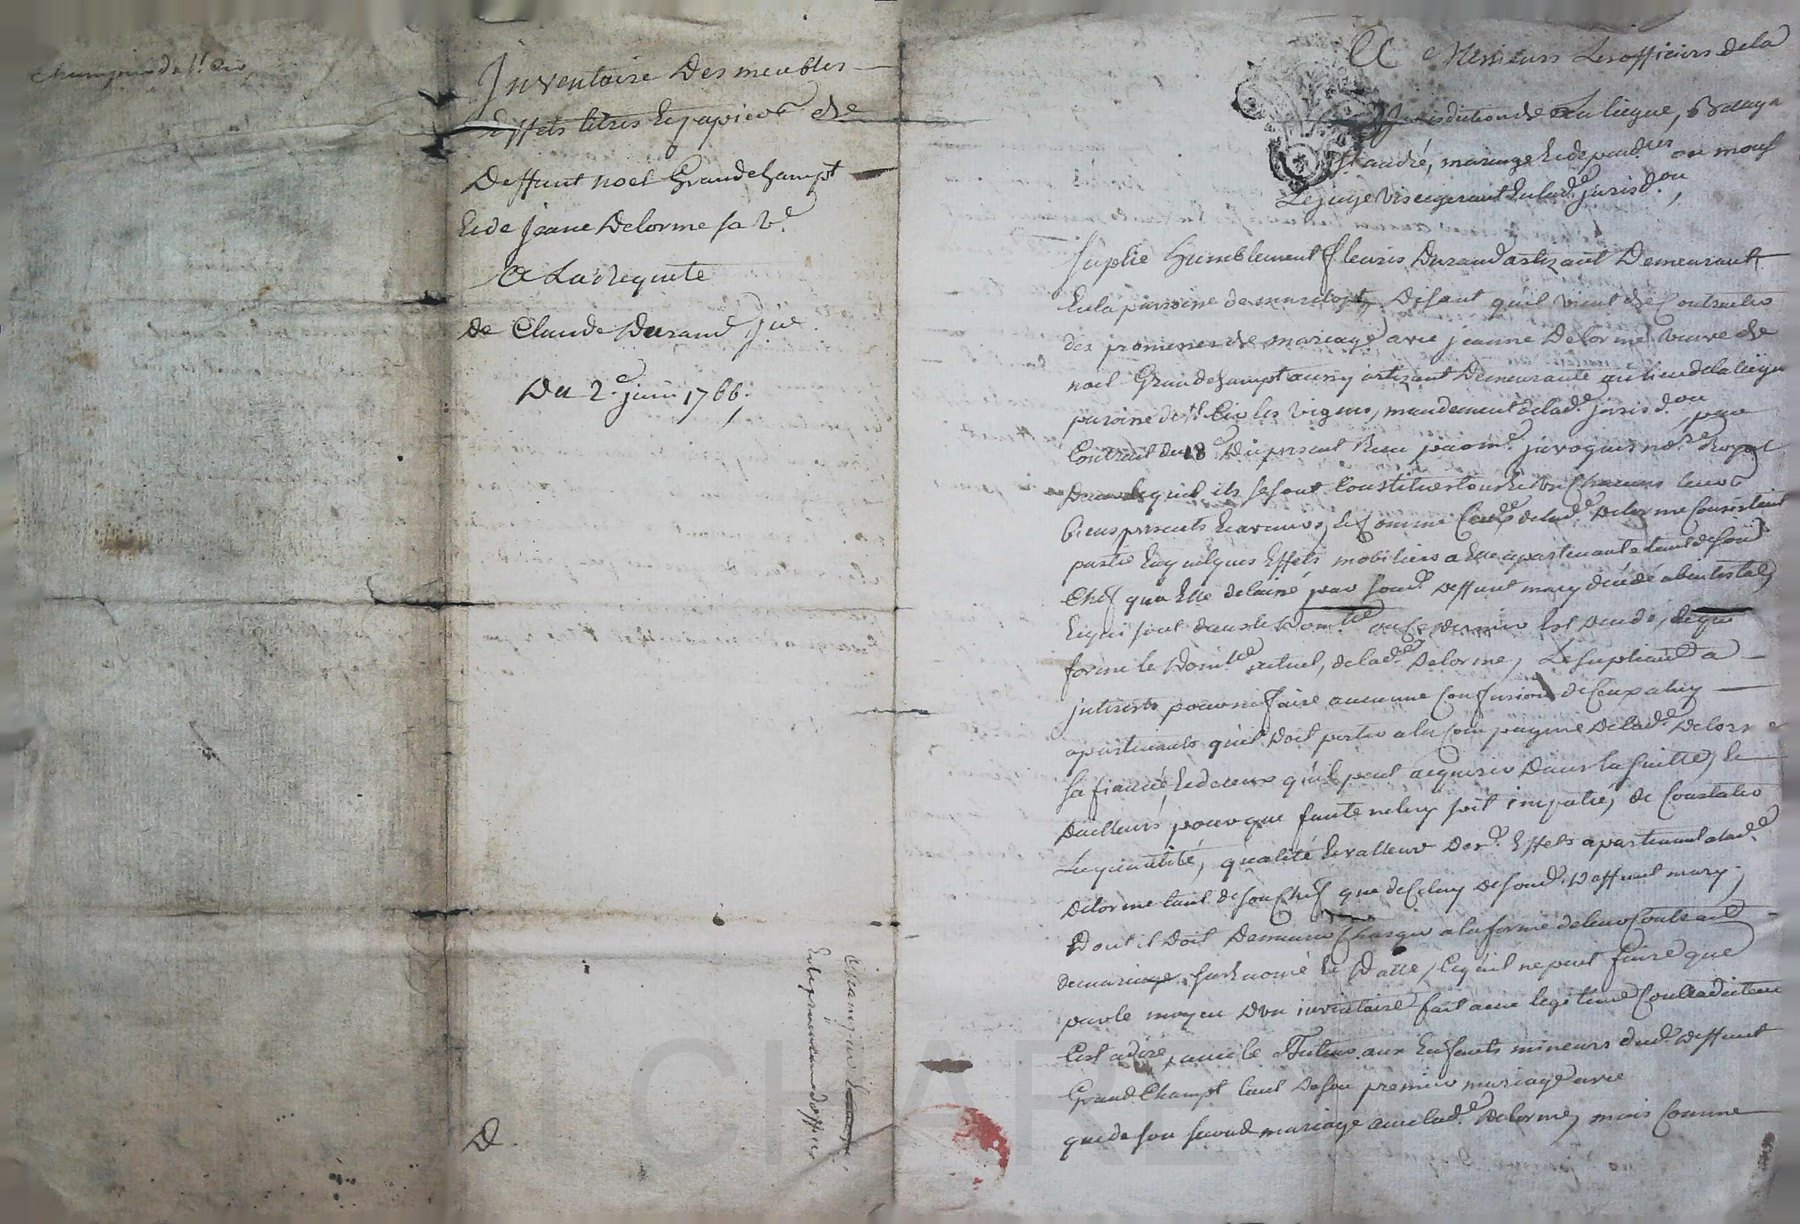 Champein de st Cir
Inventaire Des meubles
Effets titres Et papiers de
Deffunt noel Grandchampt
Et de Jeanne Delorme sa ve
A La Requete
de Claude Durand
Du 2e juin 1766.
D.
A Messieurs Les officiers de la
Jurisdiction de La liegue,
st andré, mariage Et dépend.ces ou monsr
Le juge visegerant En lad.e jurisd.on,
Suplie humblement fleuris Durand artizant Demeurant
En la paroisse de Disant quil vient de Contracter
des promesses de mariage avec jeanne Delorme veuve de
noel Grandchampt aussy artizant Demeurante au lieu de la liegue
paroisse de st Cir les vignes, mandement de lad.e jurisd.on par
Contrait du 18e Du present Receu par me no.re Royal
Dans lequel ils se sont Constitues tous Et Un Chacuns leurs
biens presents Et avenirs, Et Comme Ceux de lad.e Delorme Consistent
partie En quelques Effets mobiliers a Elle apartenant tant de son
Chef qua Elle delaissé par sond. Deffunt mary décédé abintestat,
Et qui sont dans le Dom.lle ou Ce dernier Est decedé, Et qui
forme le Domi.lle actuel, de lad.e Delorme, Le supliant a
interest pour ne faire aucunne Confusion de Ceux a luy
apartenants quil Doit porter a la Compagnie De lad.e Delorme
sa fiancée, Et de ceux quil peut acquerir Dans la suitte, Et
Dailleurs pour que faute ne luy soit imputée, de Constater
La quantité, qualité Et valleur Des d. Effets apartenant a lad.e
Delorme tant de son Chef que de Celuy De sond. Deffunt mary,
Dont il Doit Demeurer Chargé a la forme de leur Contract
de mariage susd nomé Et Datte, Ce quil ne peut faire que
par le moyen Dun inventaire fait avec legitime Contradicteur
Cest a dire, avec le Tuteur aux Enfants mineurs dud. Deffunt
Grand Champt tant De son premier mariage avec
que de son second mariage avec lad.e Delorme, mais Comme